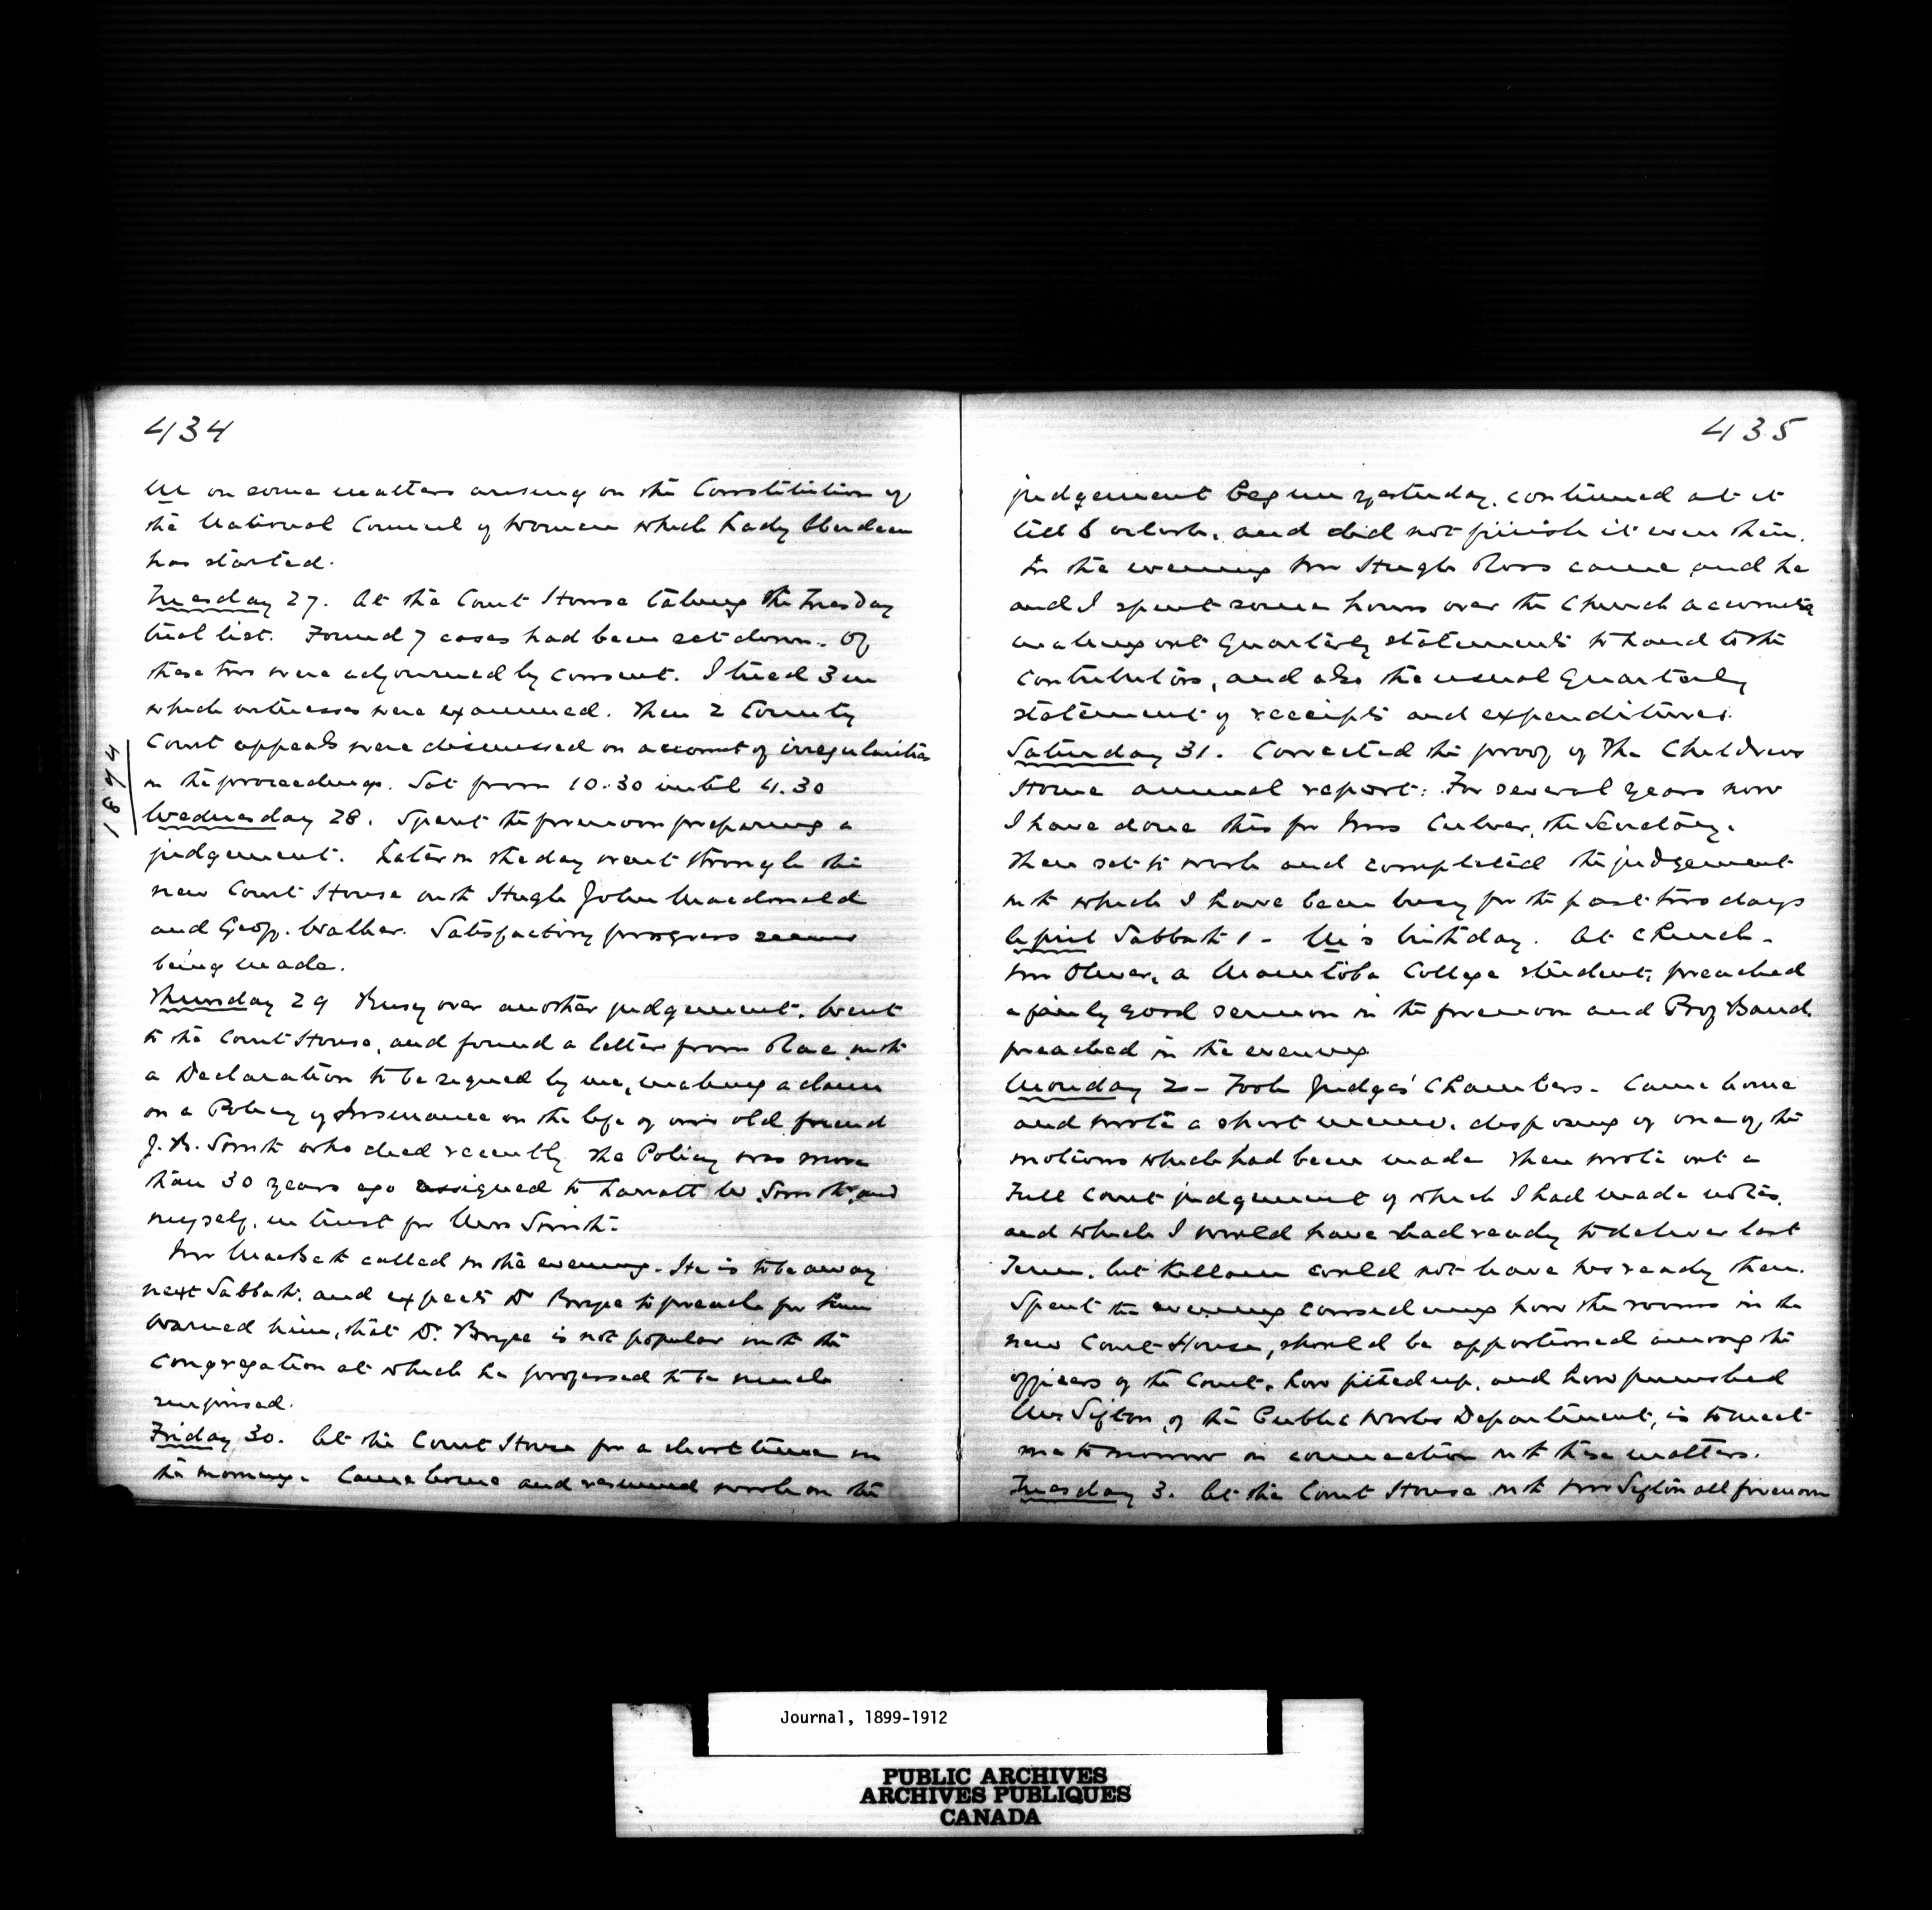 434
M on some matters arising on the Constitution of
the National Council of Women which Lady Aberdeen
has started.
Tuesday 27. At the Court House taking the Tuesday
trial list. Found 7 cases had been set down. Of
these two were adjourned by consent. I tried 3 in
which witnesses were examined. Then 2 County
Court appeals were dismissed on account of irregularities
in the proceedings. Sat from 10.30 until 4.30
1894
Wednesday 28. Spent the forenoon preparing a
judgement. Later in the day went through the
new Court House with Hugh John Macdonald
and Geoff. Walker. Satisfactory progress seems
being made.
Thursday 29 Busy over another judgement. Went
to the Court House, and found a letter from Rae with
a Declaration to be signed by me, making a claim
on a Policy of Insurance on the life of our old friend
J. B. Smith who died recently. The Policy was more
than 30 years ago assigned to Larratt W. Smith and
myself, in trust for Mrs Smith.
Mr MacBeth called in the evening. He is to be away
next Sabbath, and expects Dr Bryce to preach for him
Warned him, that Dr. Bryce is not popular with the
congregation at which he professed to be much
surprised.
Friday 30. At the Court House for a short time in
the morning. Came home and resumed work on the
435
judgement begun yesterday, continued at it
till 6 oclock, and did not finish it even then.
In the evening Mr Hugh Ross came and he
and I spent some hours over the Church accounts
making out Quarterly statements to hand to the
contributors, and also the usual Quarterly
statement of receipts and expenditures.
Saturday 31. Corrected the proof of The Childrens
Home annual report. For several years now
I have done this for Mrs Culver, the Secretary.
Then set to work and completed the judgement
with which I have been busy for the past two days
April Sabbath 1 - M's birthday. At Church -
Mr Oliver, a Manitoba College student, preached
a fairly good sermon in the forenoon and Prof Baird
preached in the evening
Monday 2 - Took Judges' Chambers. Came home
and wrote a short memo. disposing of one of the
motions which had been made Then wrote out a
Full Court judgement of which I had made notes,
and which I would have had ready to deliver last
Term, but Killam could not have his ready then.
Spent the evening considering how the rooms in the
new Court House, should be apportioned among the
officers of the Court, how fitted up, and how furnished
Mr Sifton, of the Public Works Department, is to meet
me to morrow in connection with these matters.
Tuesday 3. At the Court House with Mr Sifton all forenoon
Journal, 1899-1912
PUBLIC ARCHIVES
ARCHIVES PUBLIQUES
CANADA